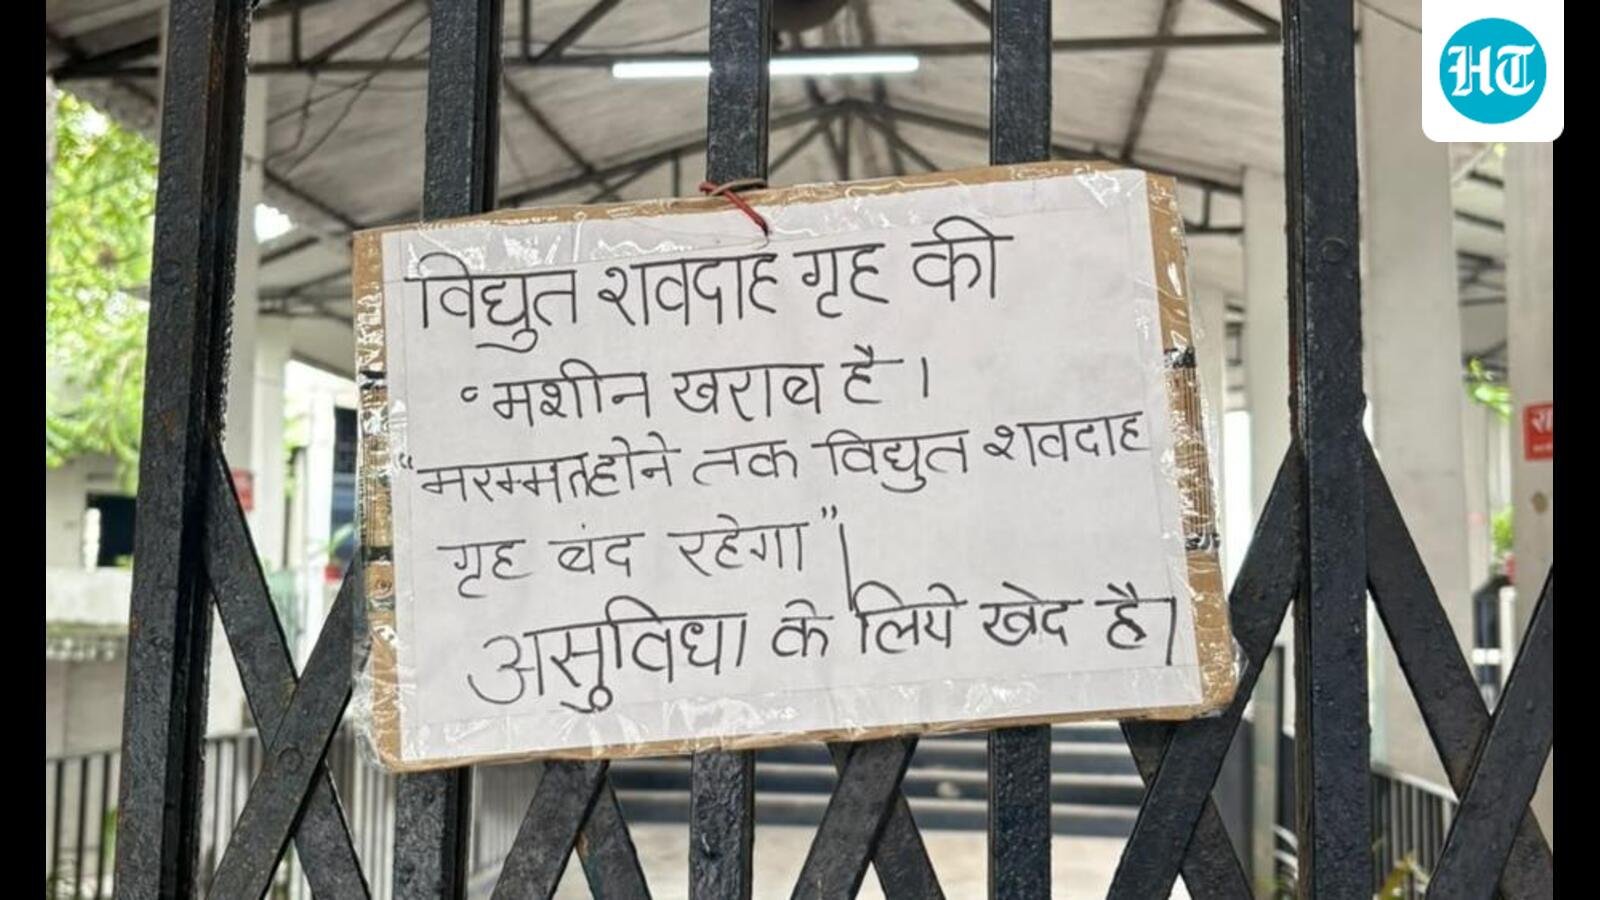 HT
विद्युत शवदाह गृह की
॰मशीन खराब है।
“मरम्मत होने तक विद्युत शवदाह
गृह बंद रहेगा”।
असुविधा के लिये खेद है।